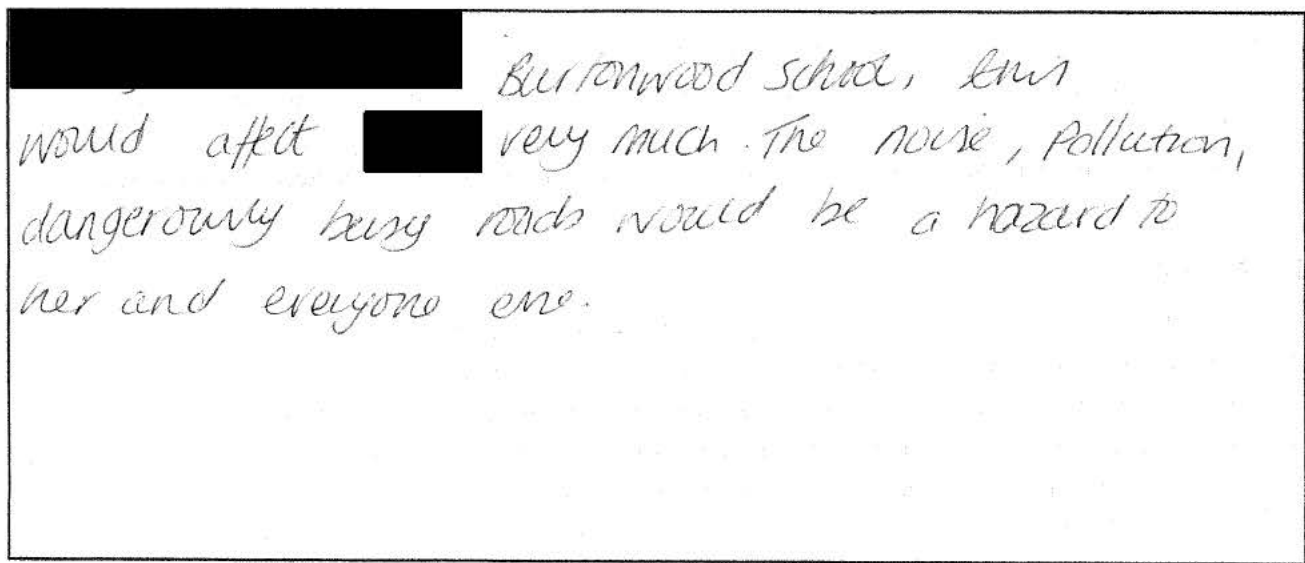 Burtonwood school, this
would affect very much. The noise, Pollution,
dangerously busy roads would be a hazard to
her and everyone else.